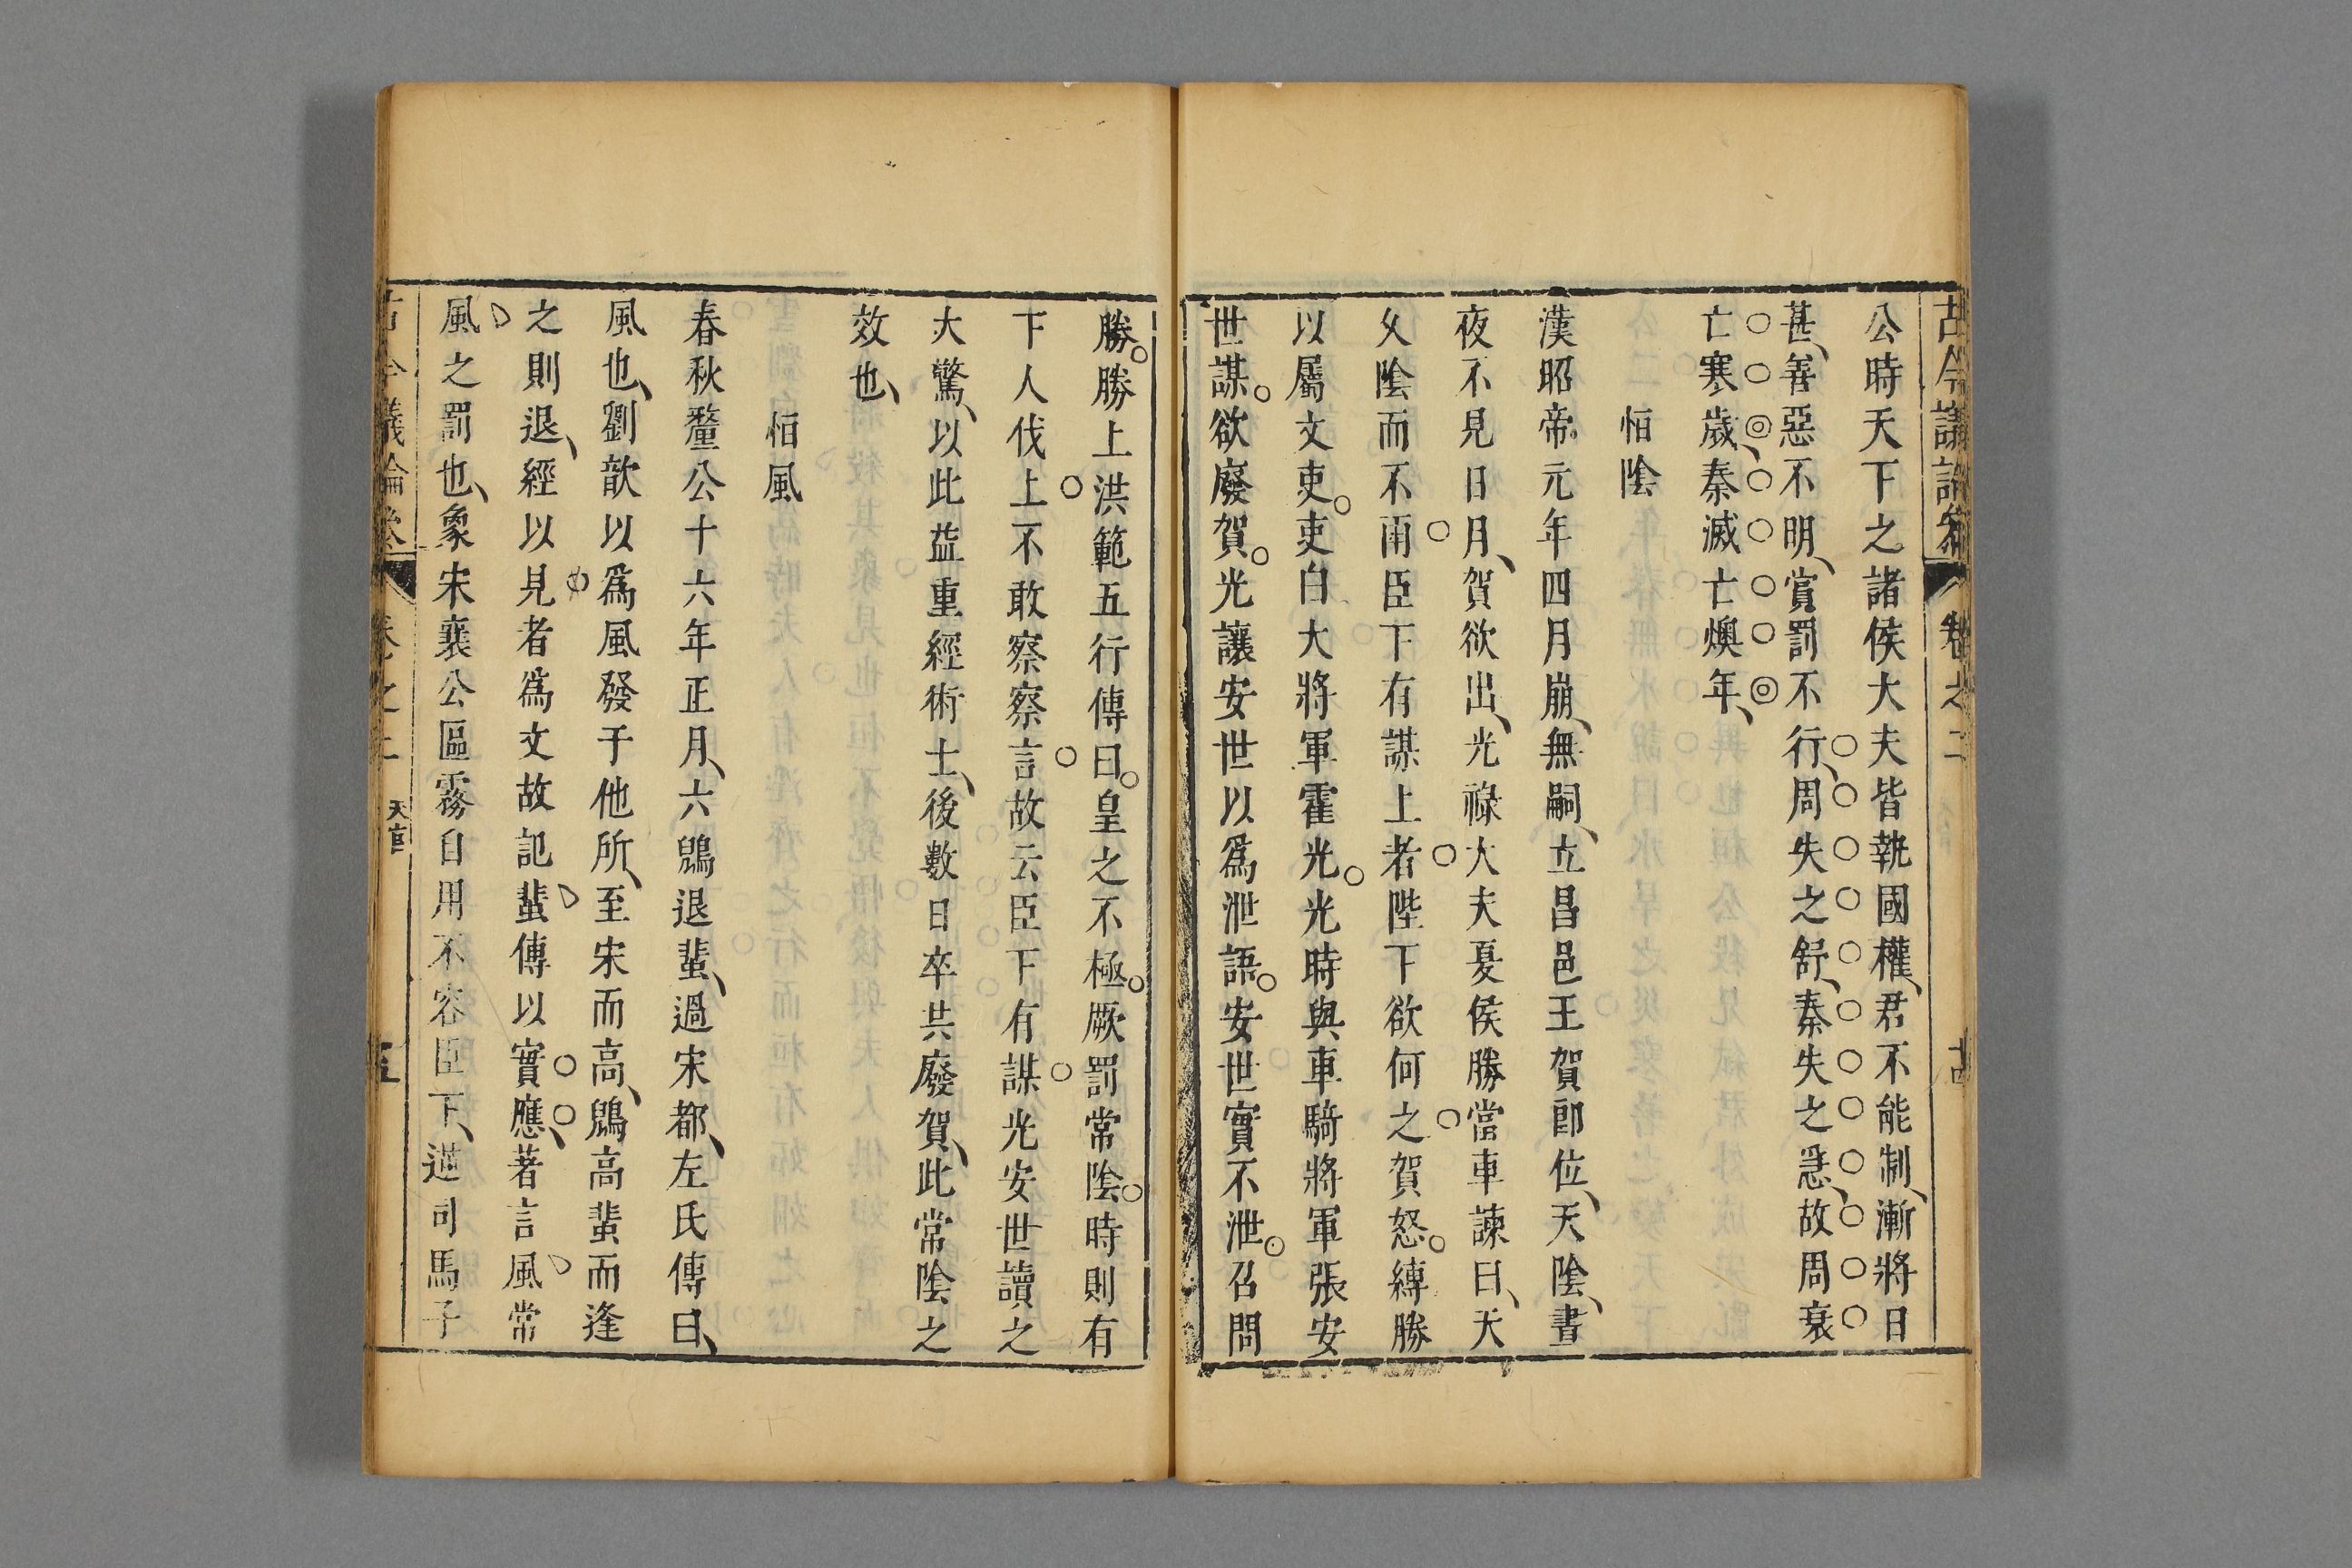 古今議論參 卷之二 十四
公時天下之諸侯大夫皆執國權君不能制漸將日
甚善惡不明賞罰不行周失之舒秦失之急故周衰
亡寒歲秦滅亡燠年
恒陰
漢昭帝元年四月崩無嗣立昌邑王賀郎位天陰晝
夜不見日月賀欲出光祿大夫夏侯勝當車諫曰天
久陰而不雨臣下有謀上者陛下欲何之賀怒縛勝
以屬文吏吏白大將軍霍光光時與車騎將軍張安
世謀欲廢賀光讓安世以爲泄語安世實不泄召問
勝勝上洪範五行傳曰皇之不極厥罰常陰時則有
下人伐上不敢察察言故云臣下有謀光安世讀之
大驚以此益重經術士後數日卒共廢賀此常陰之
效也
恒風
春秋釐公十六年正月六鶂退蜚過宋都左氏傳曰
風也劉歆以爲風發于他所至宋而高鶂高蜚而逢
之則退經以見者爲文故記蜚傳以實應著言風常
風之罰也象宋襄公區霧自用不容臣下逆司馬子
古今議論參 卷之二 天官 十五